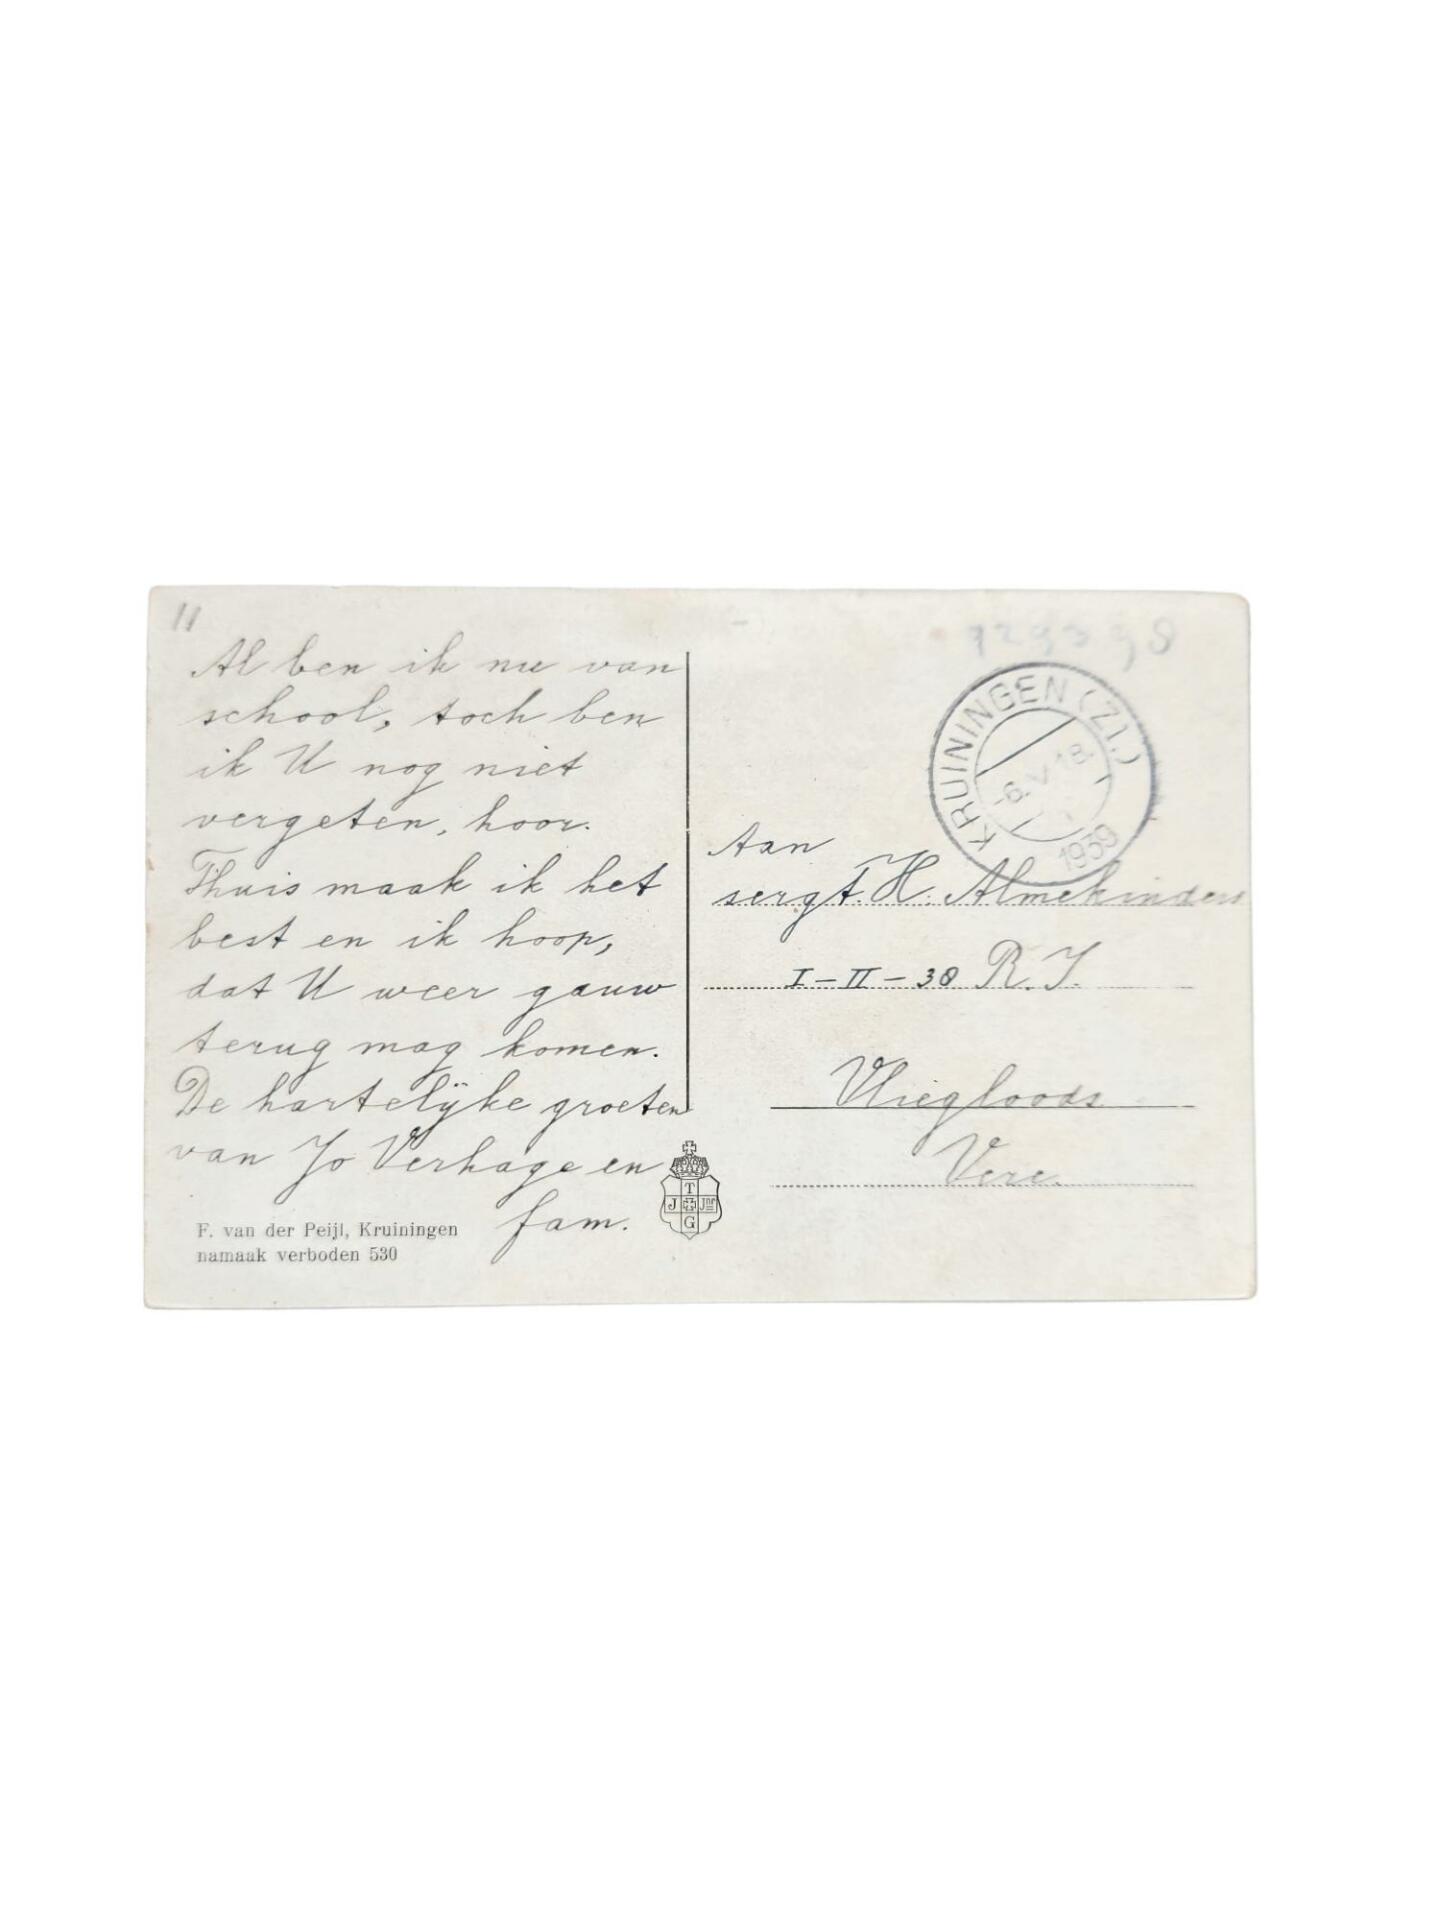 11
Al ben ik nu van
school, toch ben
ik U nog niet
vergeten, hoor.
Thuis maak ik het
best en ik hoop,
dat U weer gauw
terug mag komen.
De hartelijke groeten
van Jo Verhage en
fam.
F. van der Peijl, Kruiningen
namaak verboden 530
T
J Jnr
G
KRUININGEN (Zl.)
-6.V 18.
1939
Aan
sergt. H. Almekinders
I-II-38 R.I.
Vliegloods
Vere.